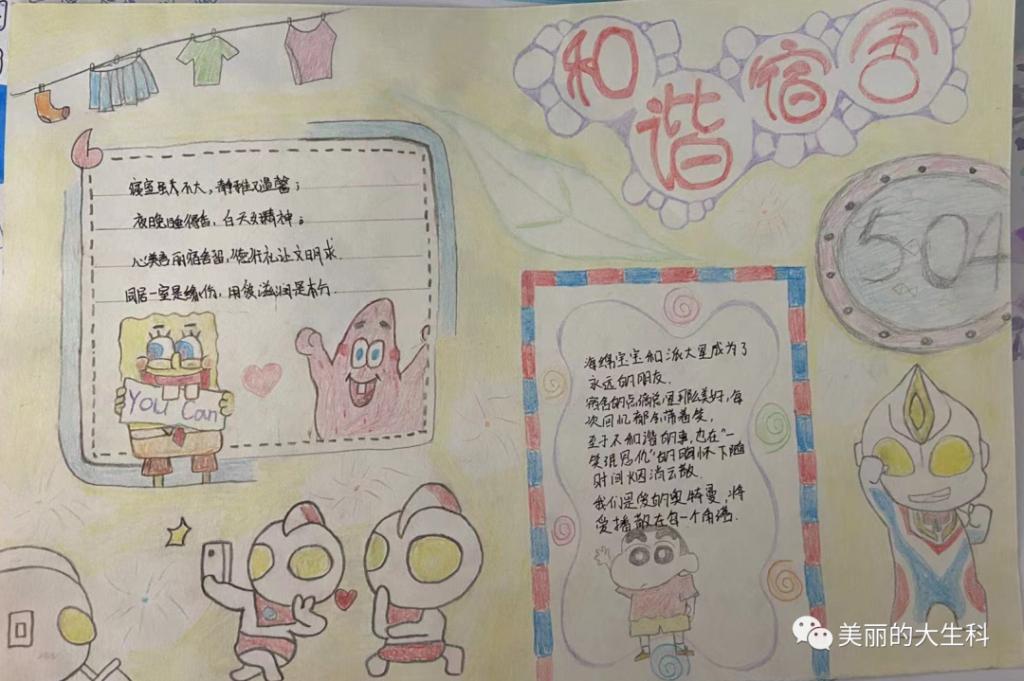 和谐宿舍
504
寝室虽不大，静雅又温馨；
夜晚睡得香，白天好精神；
心美善丽宿舍留，德行礼让文明求.
同居一室是缘份，用爱滋润是本分.
You Can
海绵宝宝和派大星成为了
永远的朋友.
宿舍的点滴总是那么美好，每
次回忆都会带着笑，
至于不和谐的事，也在“一
笑泯恩仇”的胸怀下随
时间烟消云散.
我们是爱的奥特曼，将
爱播散在每一个角落.
美丽的大生科